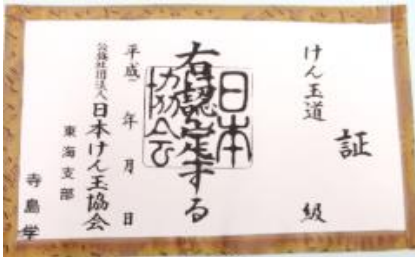 証
けん玉道 級
右認定する
日本
協会
平成 年 月 日
公益社団法人 日本けん玉協会
東海支部
寺島学